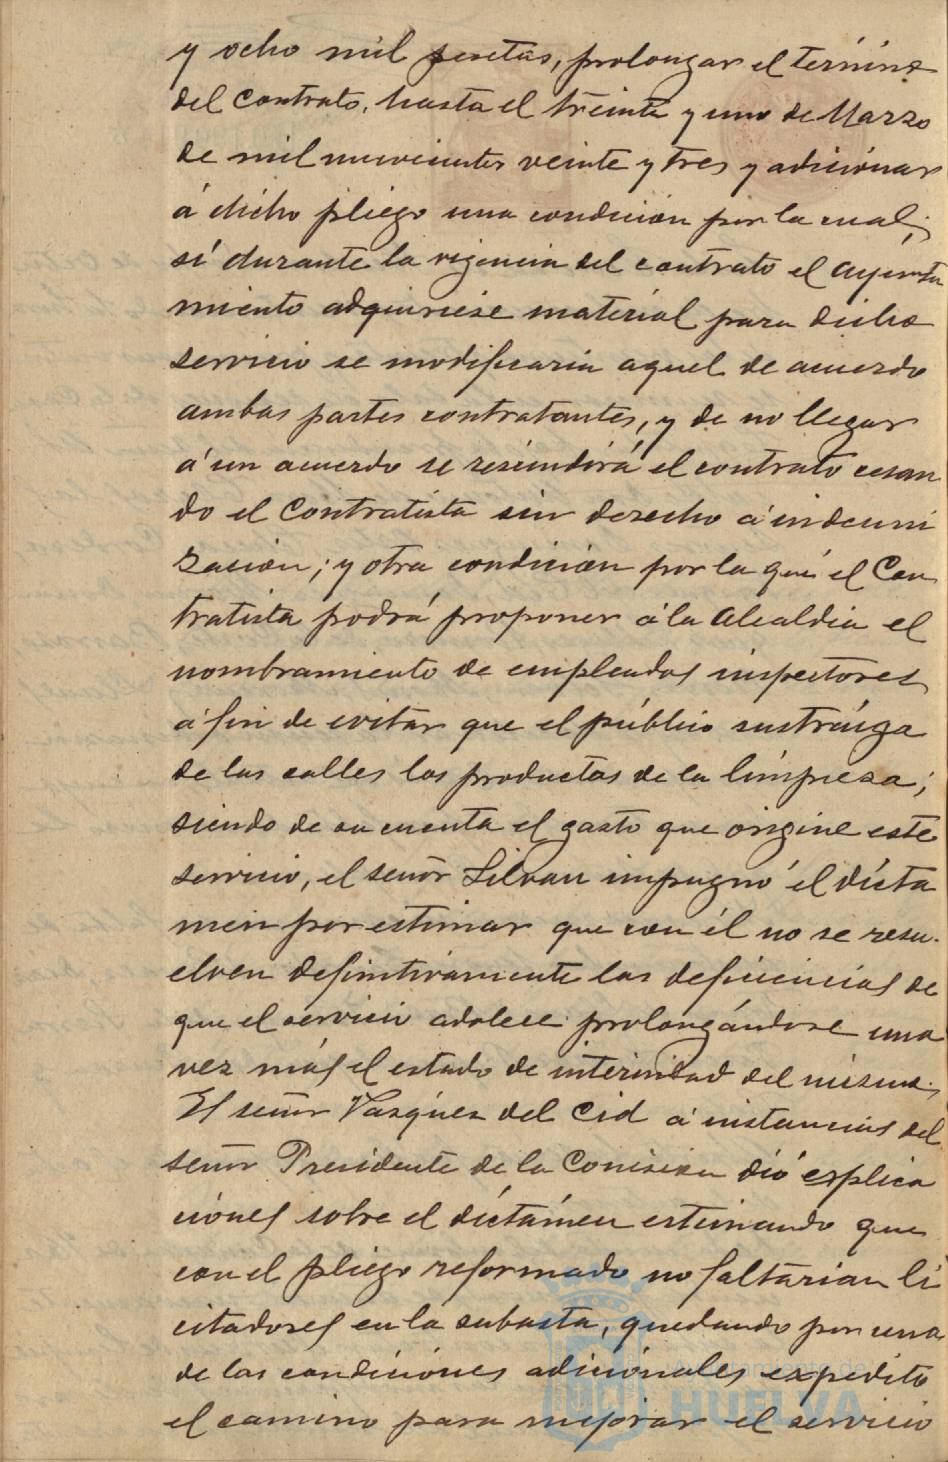 y ocho mil pesetas, prolongar el término
del contrato, hasta el treinta y uno de Marzo
de mil nuvecientos veinte y tres y adicionar
á dicho pliego una condición por la cual,
sí durante la vigencia del contrato el ayunta
miento adquiriese material para dicho
servicio se modificaria aquel de acuerdo
ambas partes contratantes, y de no llegar
á un acuerdo se rescindirá el contrato cesan
do el Contratista sin derecho á indemni
zacion; y otra condición por la qué el Con
tratista podrá proponer á la Alcaldia el
nombramiento de empleados inspectores
á fin de evitar que el público sustráiga
de las calles los productos de la límpieza;
siendo de su cuenta el gasto que origine este
servicio, el señor Silvan impugnó el dícta
men por estimar que con él no se resu-
elven definitivamente las deficiencias de
que el servicio adolece prolongándose una
vez más el estado de interinidad del mismo.
El señor Vazquez del Cid á instancias del
señor Presidente de la Comision dió esplica
ciónes sobre el díctámen estimando que
con el pliego reformado no faltarian li
citadores en la subasta, quedando por una
de las condiciónes adiciónales expedito
el camino para mejorar el servicio
Ayuntamiento de
HUELVA